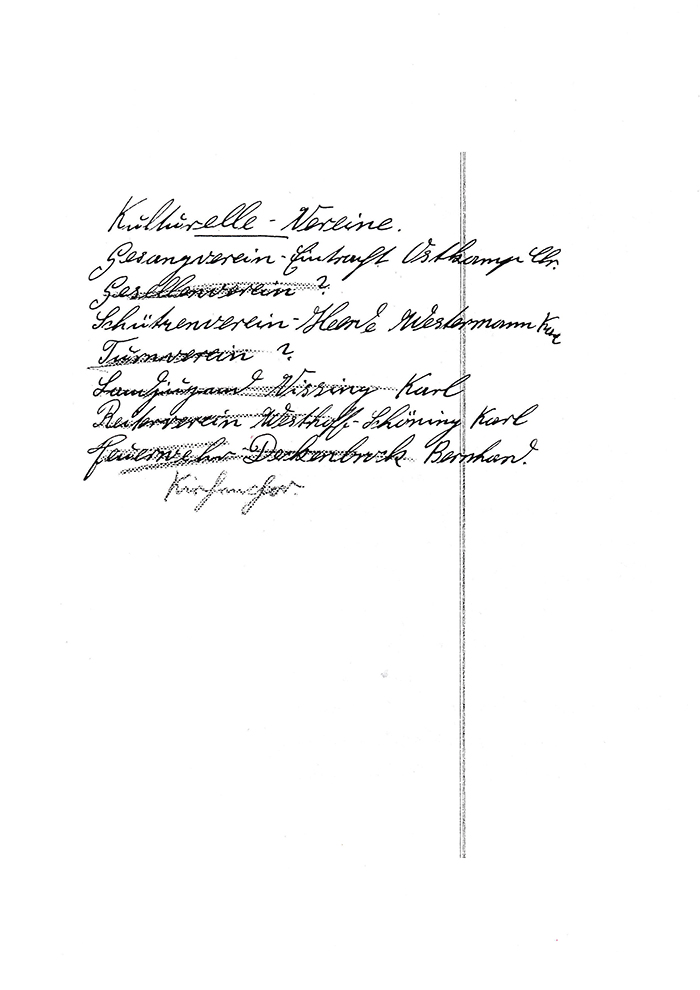 Kulturelle - Vereine.
Gesangverein - Eintracht Ostkamp Chr.
Gesellenverein ?
Schützenverein - Heerde Westermann Karl
Turnverein ?
Landjugend Wissing Karl
Reiterverein Westhoff-Schöning Karl
Feuerwehr Deckenbrock Bernhard.
Kirchenchor.